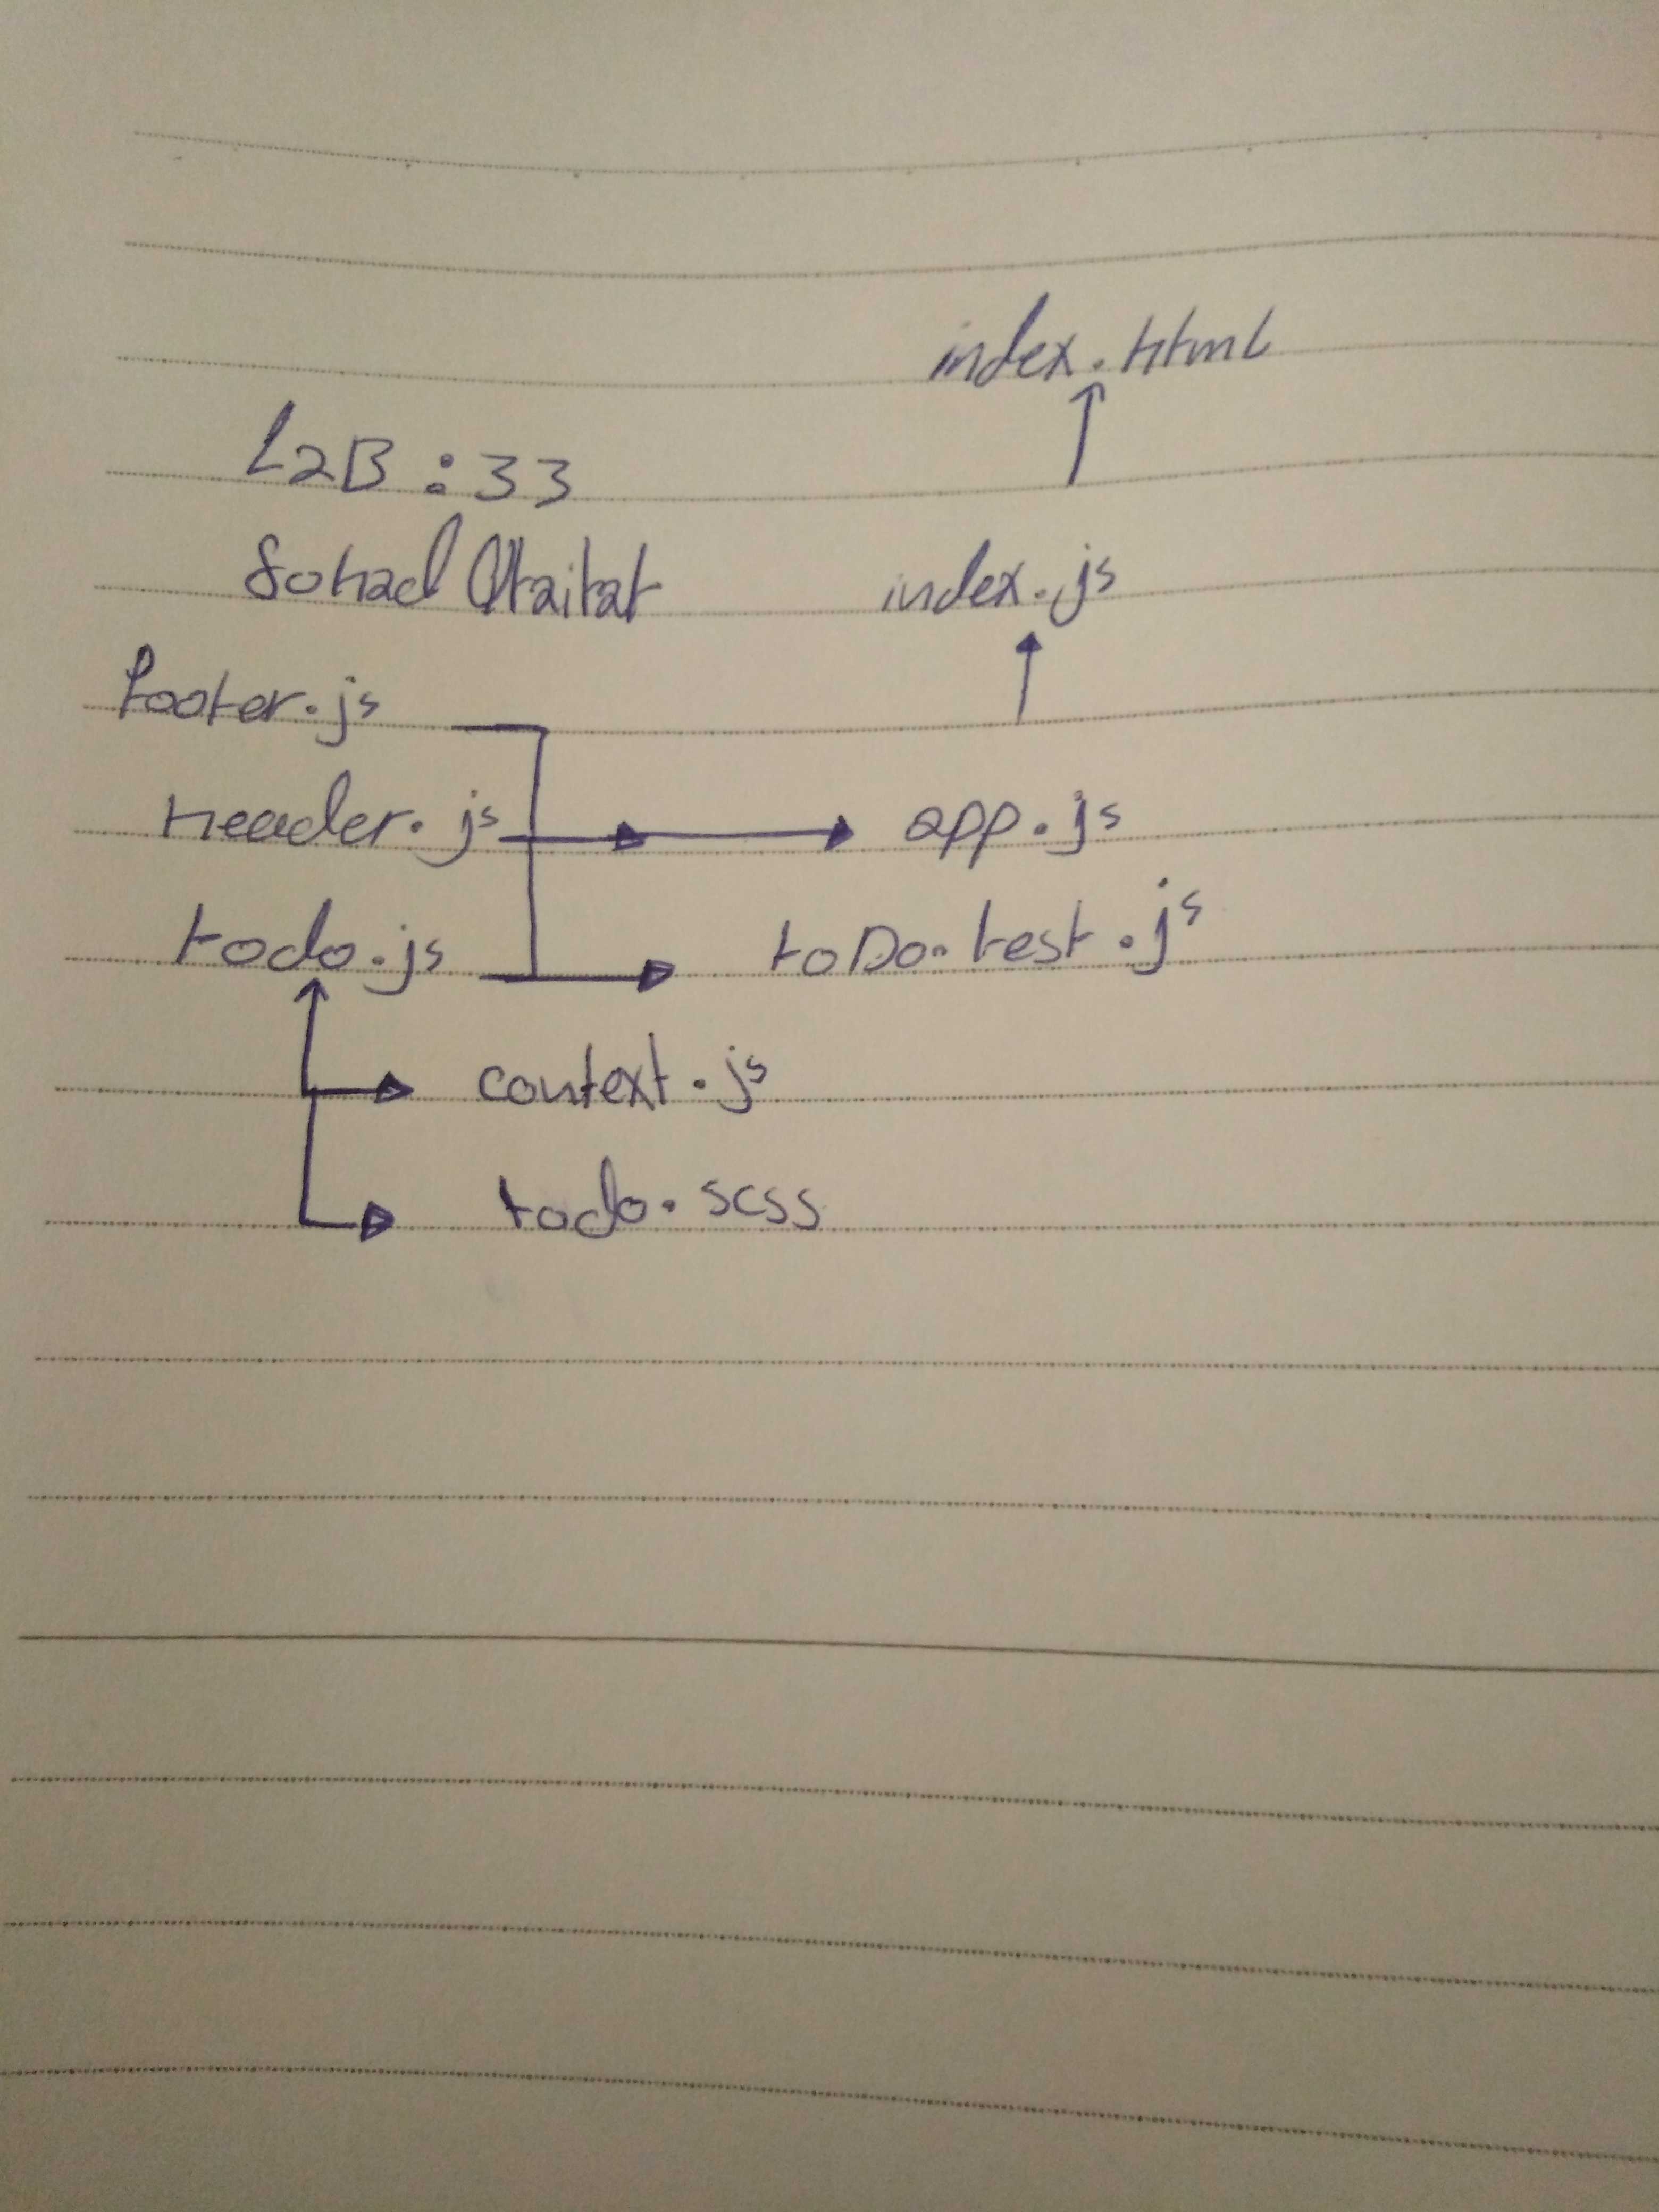 index.html
L2B:33
Sohad Qtaitat
index.js
footer.js
header.js
app.js
todo.js
toDo.test.js
context.js
todo.scss